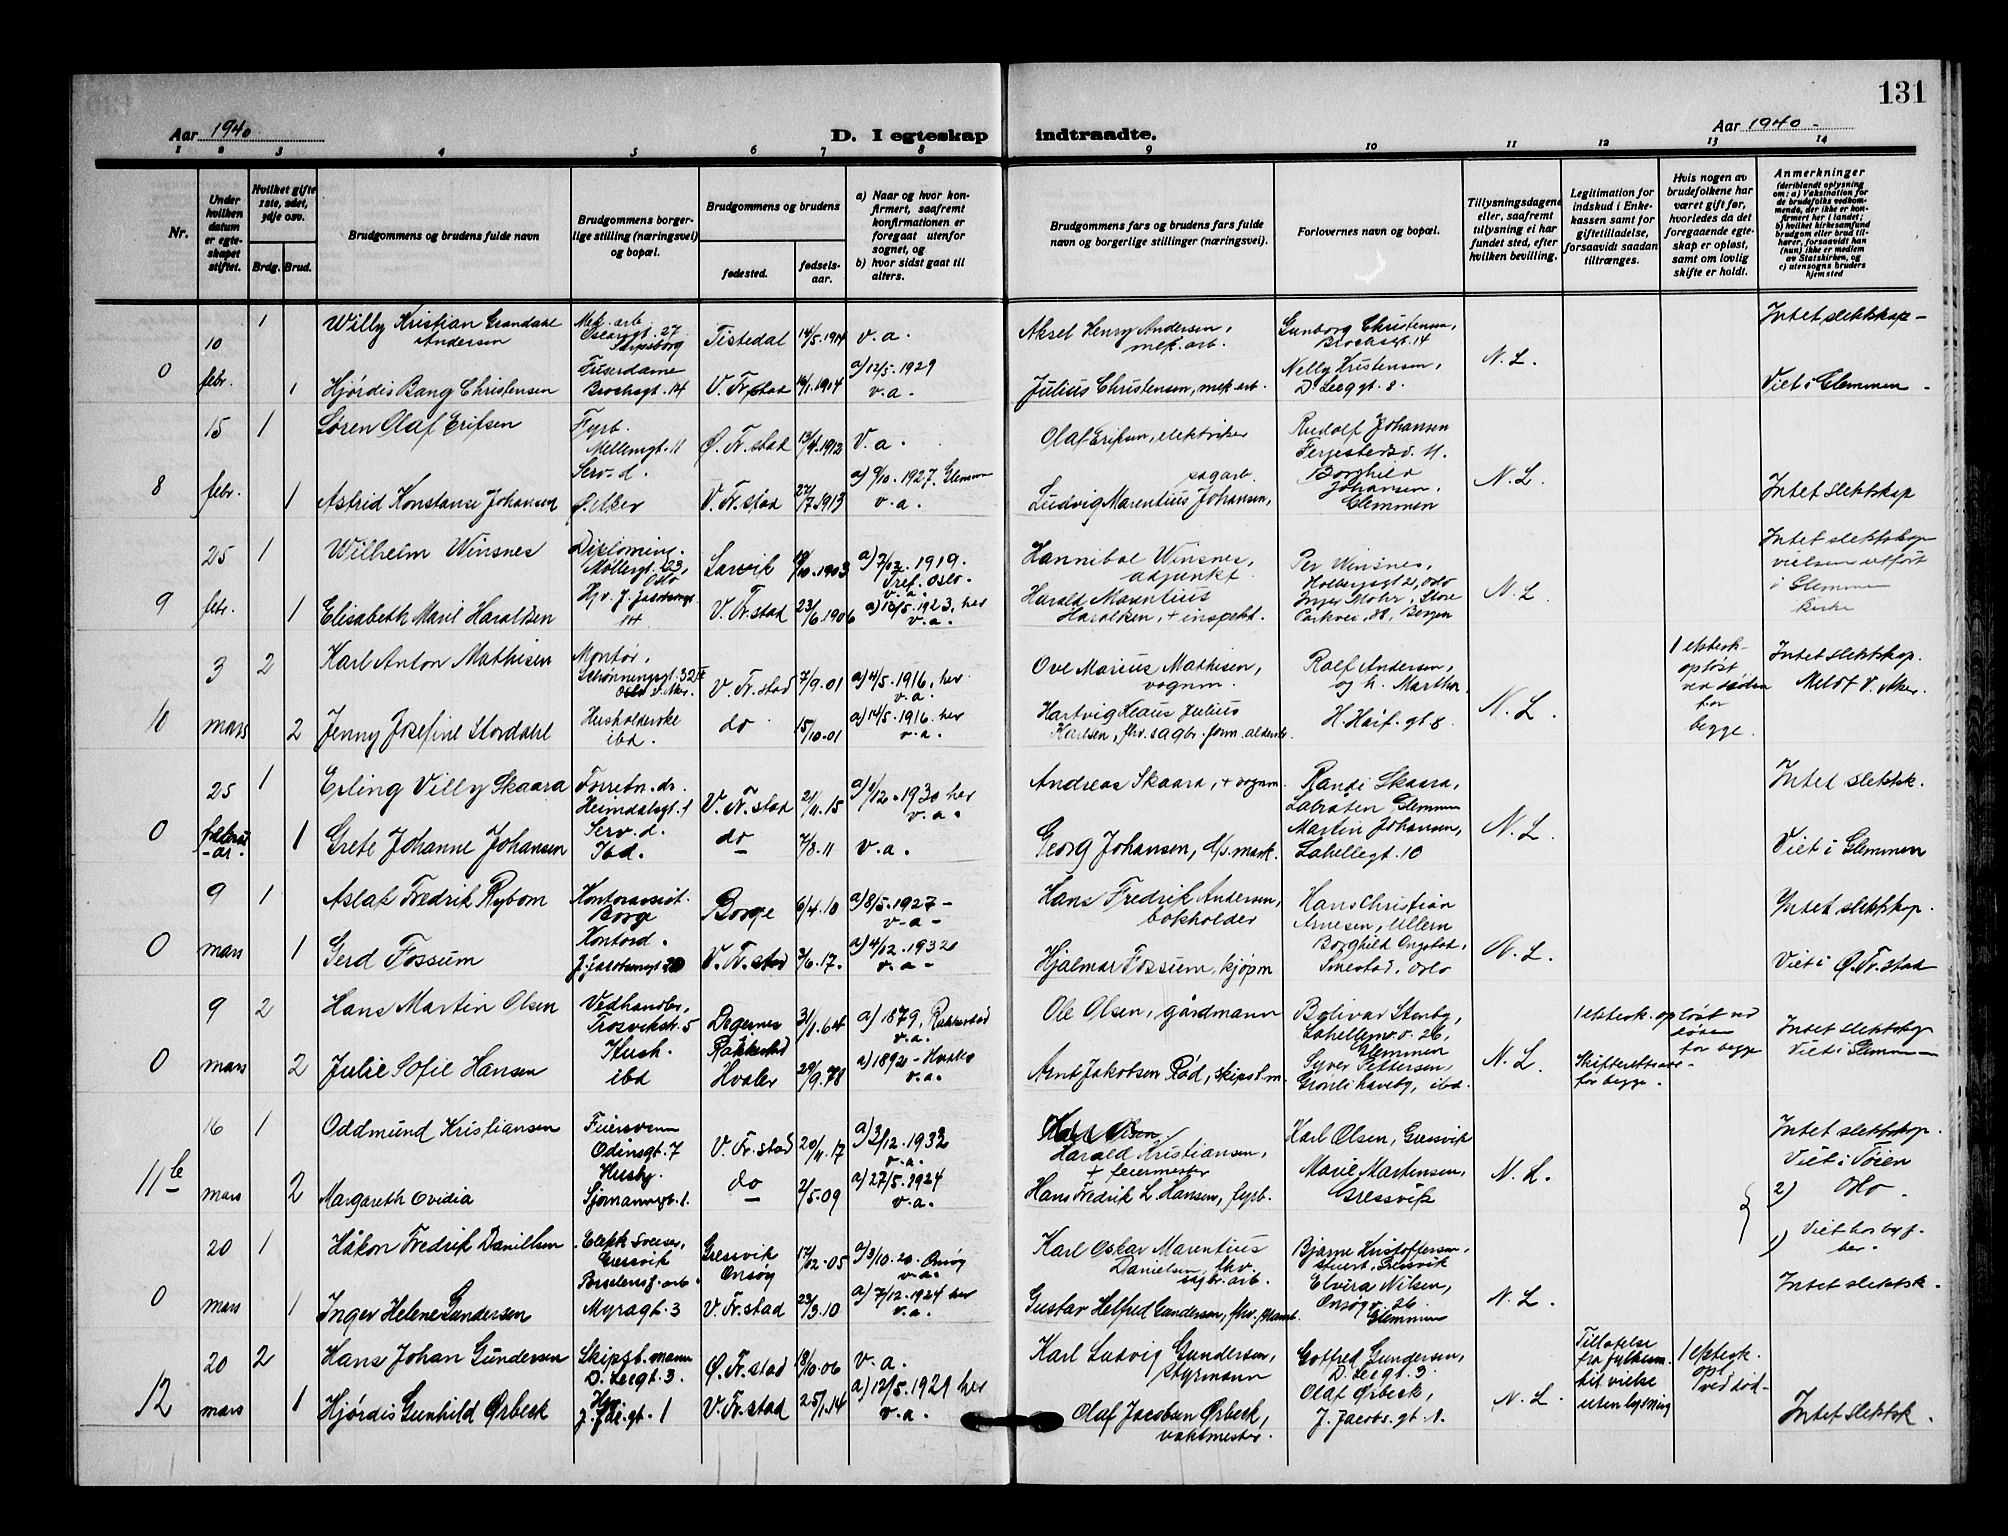 131
Aar 1940
D. I egteskap indtraadte.
Aar 1940 -
1 2 3 4 5 6 7 8 9 10 11 12 13 14
Nr.
Under hvilken datum er egteskapet stiftet.
Hvilket gifte 1ste, 2det, 3dje osv.
Brdg. Brud.
Brudgommens og brudens fulde navn
Brudgommens borgerlige stilling (næringsvei) og bopæl.
Brudgommens og brudens
fødested.
fødselsaar.
a) Naar og hvor konfirmert, saafremt konfirmationen er foregaat utenfor sognet, og
b) hvor sidst gaat til alters.
Brudgommens fars og brudens fars fulde navn og borgerlige stillinger (næringsvei).
Forlovernes navn og bopæl.
Tillysningsdagene eller, saafremt tillysning ei har fundet sted, efter hvilken bevilling.
Legitimation for indskud i Enkekassen samt for giftetilladelse, forsaavidt saadan tiltrænges.
Hvis nogen av brudefolkene har været gift før, hvorledes da det foregaaende egteskap er opløst, samt om lovlig skifte er holdt.
Anmerkninger
(deriblandt oplysning om: a) Vaksination for de brudefolks vedkommende, der ikke er konfirmert her i landet; b) hvilket kirkesamfund brudgom eller brud tilhører, forsaavidt han (hun) ikke er medlem av Statskirken, og c) utensogns bruders hjemsted
0 10 febr. 1 Willy Kristian Grandahl Andersen Mek. arb. Oscarsgt. 27 Sarpsborg Tistedal 14/5.1914 v.a. Aksel Henry Andersen, mek. arb. Gunborg Christensen, Brochsgt. 14 N.L. Intet slektskap -
1 Hjørdis Bang Christensen Brochsgt. 14 V. Fr.stad 1914 a) 12/5.1929 v.a. Julius Christensen, mek. arb. Nelly Kristensen, D. Leegt. 8. Viet i Glemmen -
8 15 febr. 1 Søren Olaf Eriksen Fyrb. Mellemgt. 11 Ø. Fr.stad 13/4.1912 v.a. Olaf Eriksen, elektriker Rudolf Johansen Ferjestedsv. 11. N.L.
1 Astrid Konstanse Johansen Serv.d. V. Fr.stad 27/7.1913 a) 9/10.1927. Glemmen v.a. Ludvig Marentius Johansen, sagarb. Borghild Johansen, Glemmen Intet slektskap
9 25 febr. 1 Wilhelm Winsnes Diploming. Møllergt. 23, Oslo Larvik 1903 a) 7/12.1919. Tref. Oslo. v.a. Hannibal Winsnes, adjunkt Per Winsnes, Holbergsgt 21, Oslo N.L. Intet slektskap vielsen utført i Glemmen kirke
1 Elisabeth Maril Haraldsen V. Fr.stad 23/6.1906 a) 13/5.1923, her v.a. Harald Marentius Haraldsen, + inspekt. Inger Mohr, Store Parkvei, Bergen
10 3 mars 2 Karl Anton Mathisen Montør, Schønningsgt. 32 V. Aker V. Fr.stad 7/9.01 a) 4/5.1916, her v.a. Ove Marius Mathisen, vognm. Rolf Andersen, og h. Martha N.L. 1 ektesk. opløst ved døden for begge Intet slektskap. Meldt V. Aker.
2 Jenny Josefine Stordahl Husholderske ibd. do 15/10.01 a) 14/5.1916. her v.a. Hartvig Klaus Julius Karlsen, fhv. sagbr. form. H. Haif. gt 8.
0 25 februar 1 Erling Villy Skaara Forretn. dr. Heimdalsgt. 1 V. Fr.stad 21/11.15 1930 her v.a. Andreas Skaara, + vognm. Randi Skaara, Labråten Glemmen N.L. Intet slektsk.
1 Grete Johanne Johansen Serv.d. Ibd. do 7/8.11 v.a. Georg Johansen, Martin Johansen, Lahellegt. 10 Viet i Glemmen
0 9 mars 1 Aslak Fredrik Rybom Kontorassist. Borge Borge 6/4.10 a) 8/5.1927 - v-a - Hans Fredrik Andersen, bokholder Hans Christian Arnesen, Lillern N.L. Intet slektskap.
1 Gerd Fossum Kontord. J. Jacobsensgt 20 V. Fr.stad 3/6.17. a) 4/12.1932 v.a - Hjalmar Fossum, kjøpm Borghild Ongstad, Smestad, Oslo Viet i Ø. Fr.stad
0 9 mars 2 Hans Martin Olsen Vedhandler, Trosvikstr. 5 Degernes Rakkestad 31/1.64 a) 1879, Rakkestad v.a. Ole Olsen, gårdmann Bolivar Stenby, Lahellemv. 26, Glemmen N.L. 1 ektesk. opløst ved døden for begge Intet slektskap Viet i Glemmen -
2 Julie Sofie Hansen Hush. ibd Hvaler 29/9.78 a) 1892 - Hvaler v.a. Arnt Jakobsen Rød, skipst.m. Syver Pettersen, Grønli haveby, ibd. Skifterettsatt. for begge.
11b 16 mars 1 Oddmund Kristiansen Feiersvenn Odinsgt. 7 V. Fr.stad 20/11.17 a) 3/12.1932 v.a. Harald Kristiansen, + feiermester Karl Olsen, Gressvik N.L. Intet slektskap. Viet i Tøien 2) Oslo.
2 Margareth Ovidia Husby. Sjømannsgt. 1. do 2/5.09 a) 27/5.1924 v.a. Hans Fredrik L. Hansen, fyrb. Marie Martensen, Gressvik
0 20 mars 1 Håkon Fredrik Daniellsen Elektr. sveiser, Gressvik Gressvik Onsøy 17/12.05 a) 3/10.20 - Onsøy v.a. Karl Oskar Marentius Danielsen, fhv. sagbr. arb. Bjarne Kristoffersen, stuert, Gressvik N.L. 1) Viet hos byf. her.
1 Inger Helene Gundersen Porselensf. arb. Myragt. 3 V. Fr.stad 23/3.10 a) 7/12.1924 her v.a. Gustav Helfred Gundersen, fhv. Elvira Nilsen, Onsøyv. 26 Glemmen Intet slektsk.
12 20 mars 2 Hans Johan Gundersen Skipst. mann D. Leegt. 3. Ø. Fr.stad 18/10.06 v.a. Karl Ludvig Gundersen, styrmann Gotfred Gundersen, D. Leegt. 3. N.L. Tillatelse fra fylkesm. til vielse uten lysning 1 ektesk. opl ved død -
1 Hjørdis Gunhild Ørbeck J. Jac. gt. 1 V. Fr.stad 25/1.14 a) 12/5.1929 her v.a. Olaf Jacobsen Ørbeck, vaktmester. Olaf Ørbeck, J. Jacobs. gt. 1. Intet slektsk.